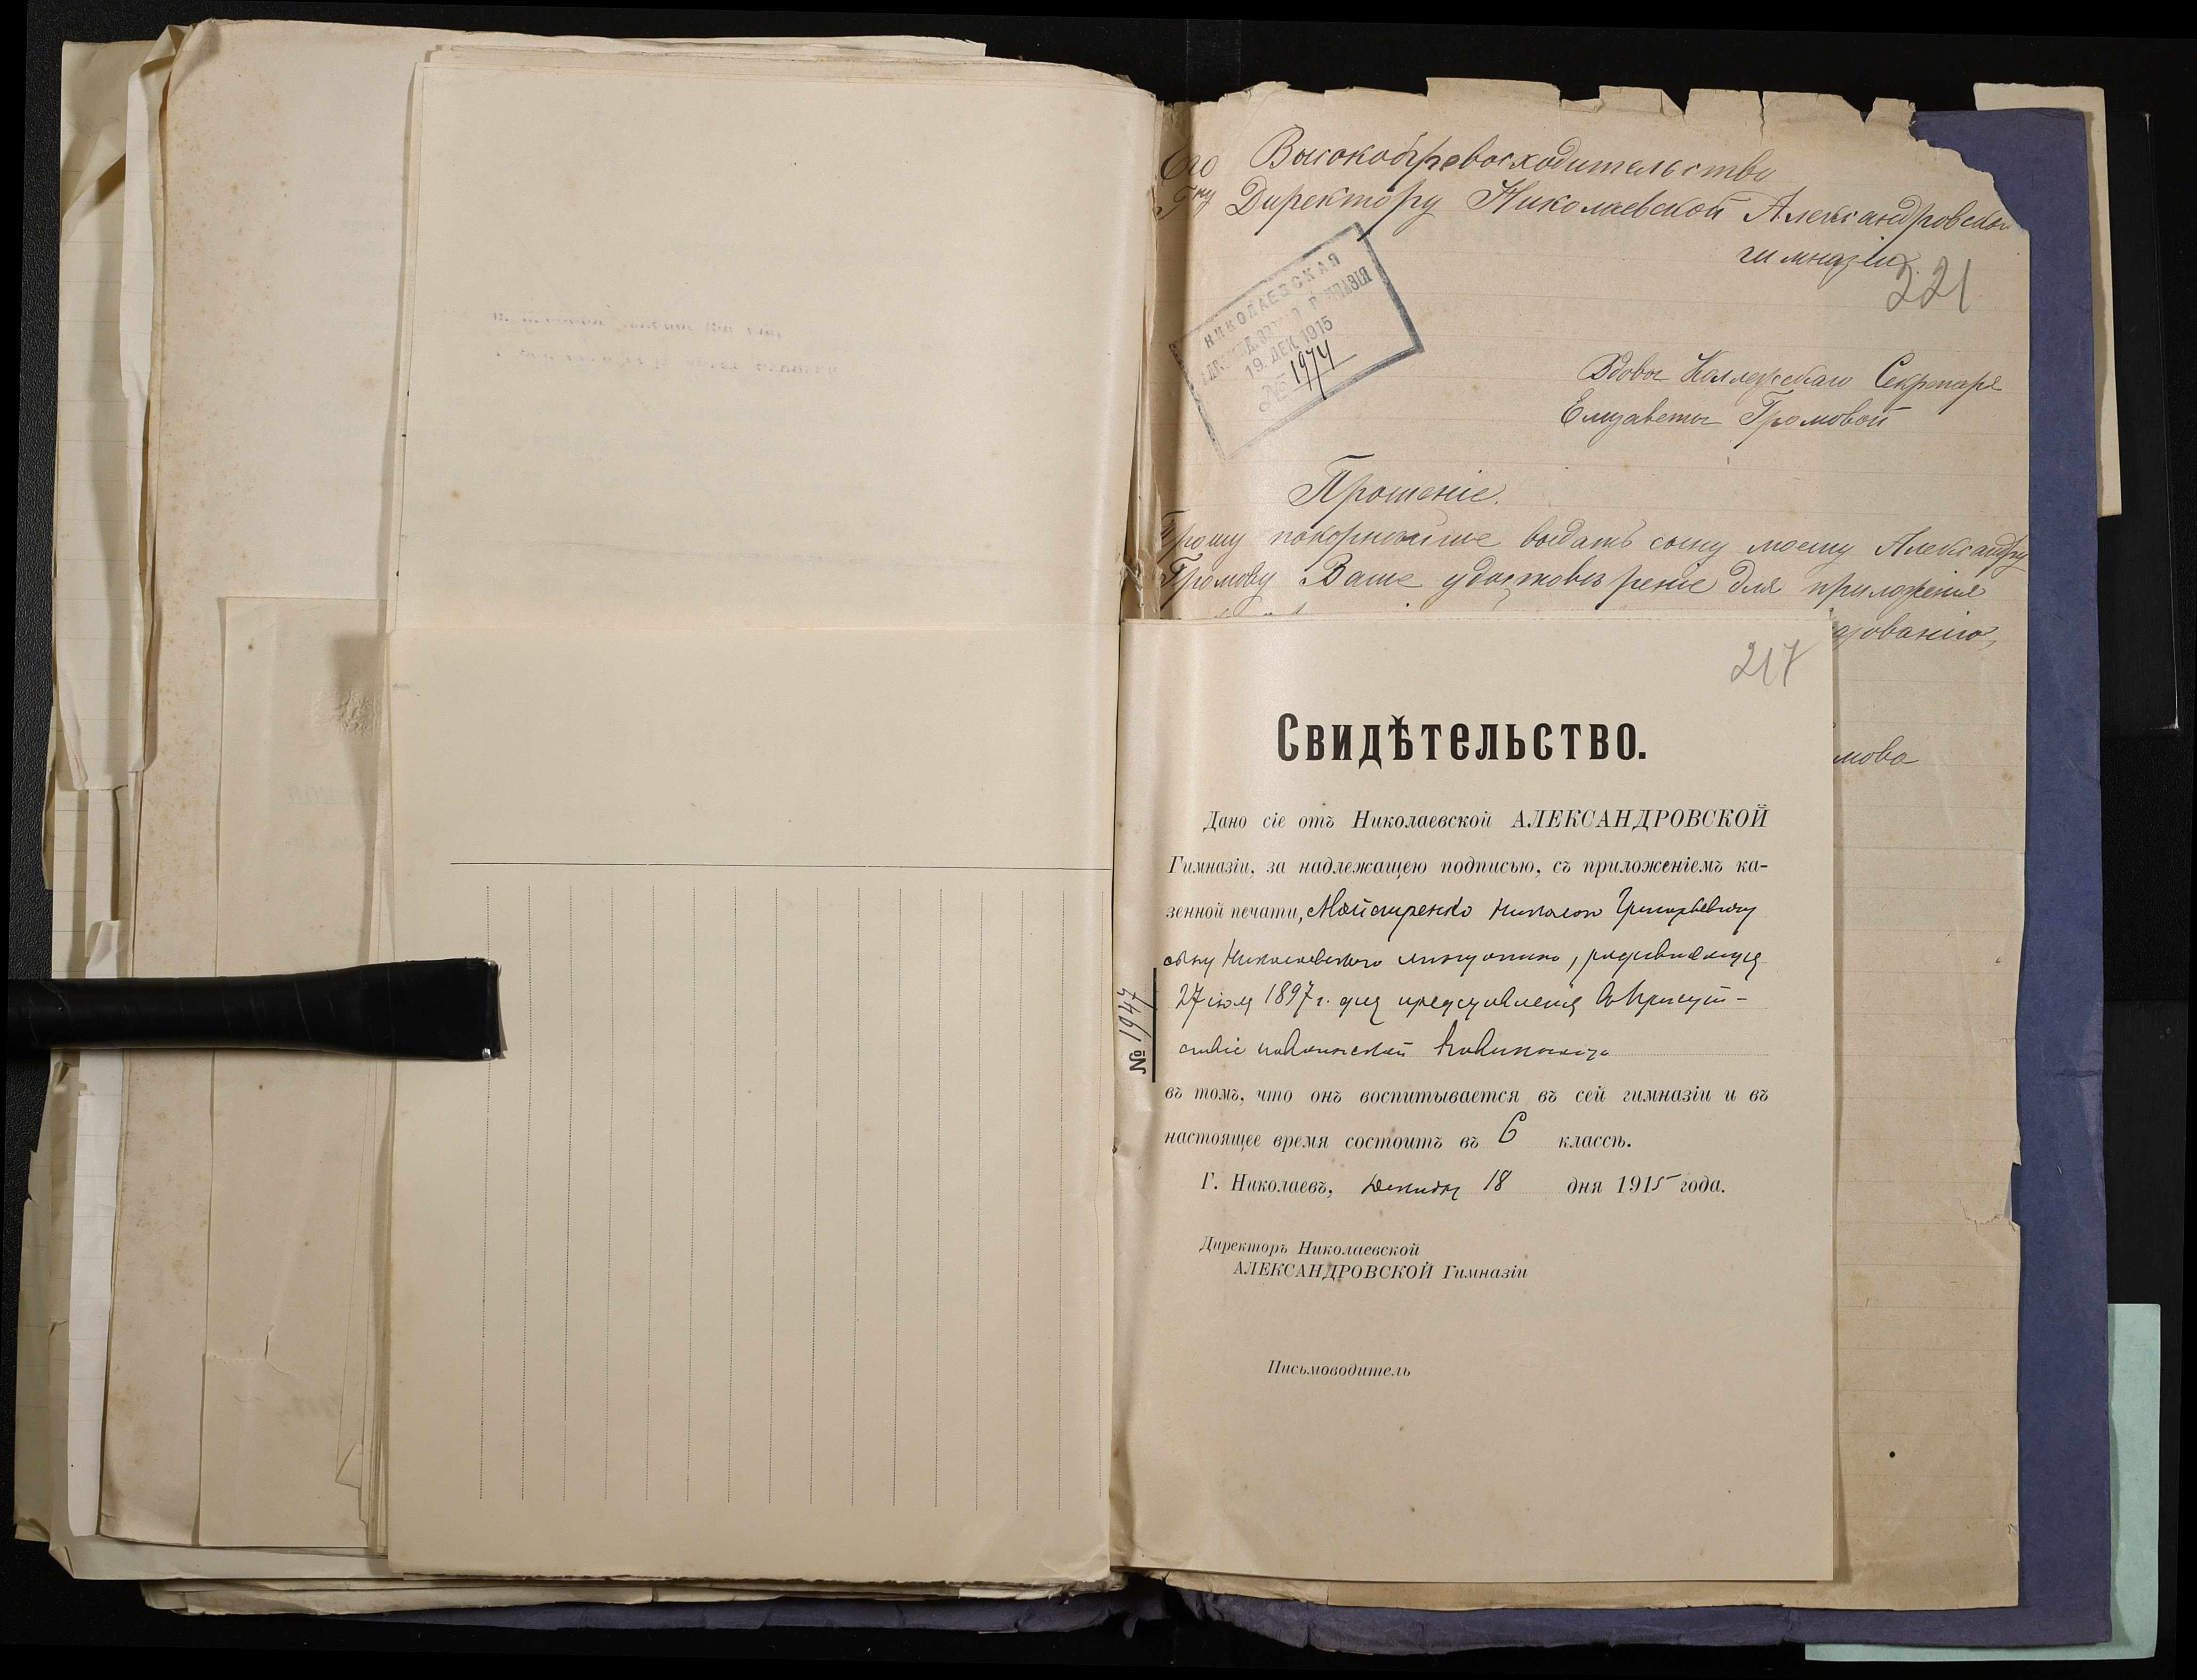 Его Высокопревосходительство
Гну Директору Николаевской Александровской
гимназіи.
221
НИКОЛАЕВСКАЯ
АЛЕКСАНДРОВСКАЯ ГИМНАЗІЯ
19. ДЕК. 1915
№ 1974
Вдовы Коллежскаго Секретаря
Елизаветы Громовой
Прошеніе.
Прошу покорнѣйше выдать сыну моему Александру
Громову Ваше удостовѣреніе для приложенія
зованію,
мова
217
Свидѣтельство.
Дано сіе отъ Николаевской АЛЕКСАНДРОВСКОЙ
Гимназіи, за надлежащею подписью, съ приложеніемъ ка-
зенной печати, Майстренко Николаю Григорьевичу
сыну Николаевскаго мѣщанина, родившемуся
27 іюля 1897 г. для представленія въ Присут-
ствіе по воинской повинности
въ томъ, что онъ воспитывается въ сей гимназіи и въ
настоящее время состоитъ въ 6 классѣ.
Г. Николаевъ, Декабря 18 дня 1915 года.
№ 1947
Директоръ Николаевской
АЛЕКСАНДРОВСКОЙ Гимназіи
Письмоводитель